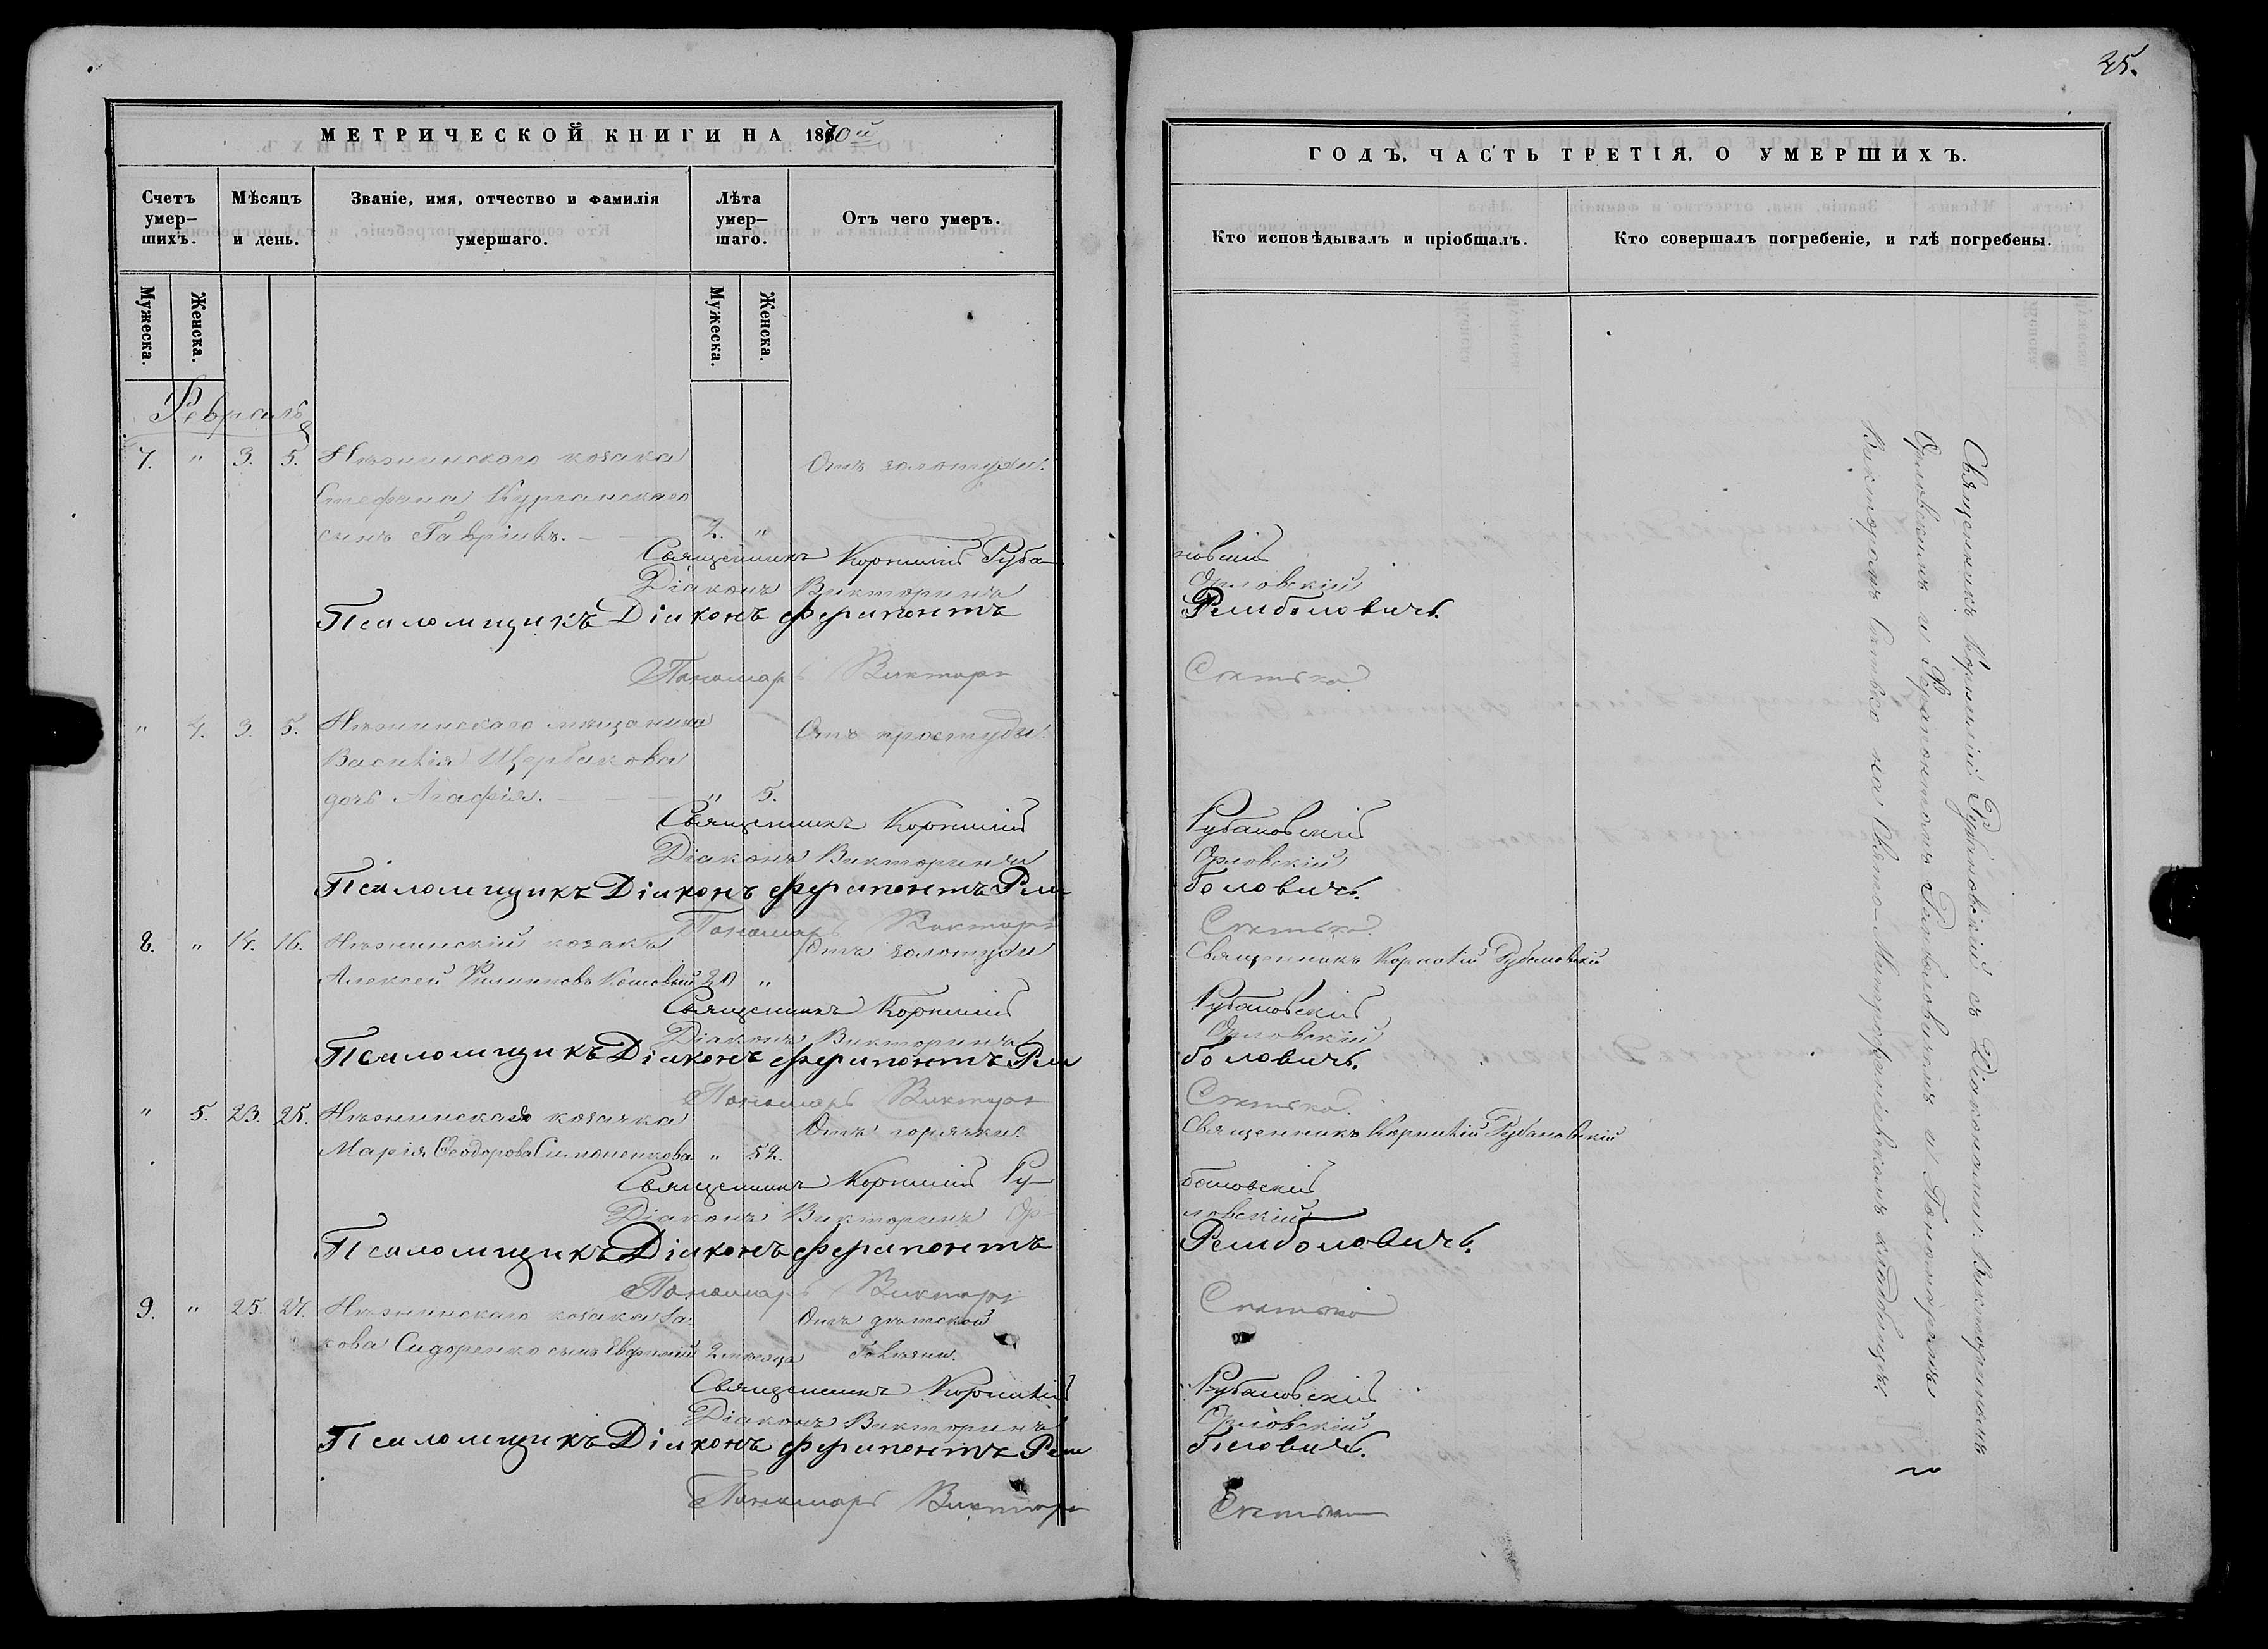 25.
МЕТРИЧЕСКОЙ КНИГИ НА 1870й
ГОДЪ, ЧАСТЬ ТРЕТІЯ, О УМЕРШИХЪ.
Счетъ умер-
шихъ.
Мѣсяцъ
и день.
Званіе, имя, отчество и фамилія
умершаго.
Лѣта
умер-
шаго.
Отъ чего умеръ.
Кто исповѣдывалъ и пріобщалъ.
Кто совершалъ погребеніе, и гдѣ погребены.
Мужеска.
Женска.
Мужеска.
Женска.
Февраль
7. " 3. 5. Нѣжинского козака Отъ золотухи.
Стефана Курганского
сынъ Гавріилъ. — 2. "
Священникъ Корнилій Рубановскій
Діаконъ Викторинъ Орловскій
Псаломщикъ Діаконъ Ферапонтъ Ремболовичъ.
Пономарь Викторъ Снитько
" 4. 3. 5. Нѣжинскаго мѣщанина Отъ простуды.
Василія Щербакова
дочь Агафія. — — — " 5.
Священникъ Корнилій Рубановскій
Діаконъ Викторинъ Орловскій
Псаломщикъ Діаконъ Ферапонтъ Ремболовичъ.
Пономарь Викторъ Снитько.
8. " 14. 16. Нѣжинскій козакъ Отъ золотухи Священникъ Корнилій Рубановскій
Алексей Филипповъ 20 "
Священникъ Корнилій Рубановскій
Діаконъ Викторинъ Орловскій
Псаломщикъ Діаконъ Ферапонтъ Ремболовичъ.
Пономарь Викторъ Снитько.
" 5. 23. 25. Нѣжинская козачка Отъ горячки. Священникъ Корнилій Рубановскій
Марія Ѳеодорова Симоненкова " 52.
Священникъ Корнилій Рубановскій
Діаконъ Викторинъ Орловскій
Псаломщикъ Діаконъ Ферапонтъ Ремболовичъ.
Пономарь Викторъ Снитько
9. " 25. 27. Нѣжинскаго козака Іа- Отъ дѣтской
кова Сидоренко сынъ Евфимій 2 мѣсяца
Священникъ Корнилій Рубановскій
Діаконъ Викторинъ Орловскій
Псаломщикъ Діаконъ Ферапонтъ Ремболовичъ.
Пономарь Викторъ Снитько
Священникъ Корнилій Рубановскій съ Діаконами: Викториномъ
Орловскимъ и Ферапонтомъ Ремболовичемъ и Пономаремъ
Викторомъ Снитько на Свято-Митрофаніевскомъ кладбищѣ.